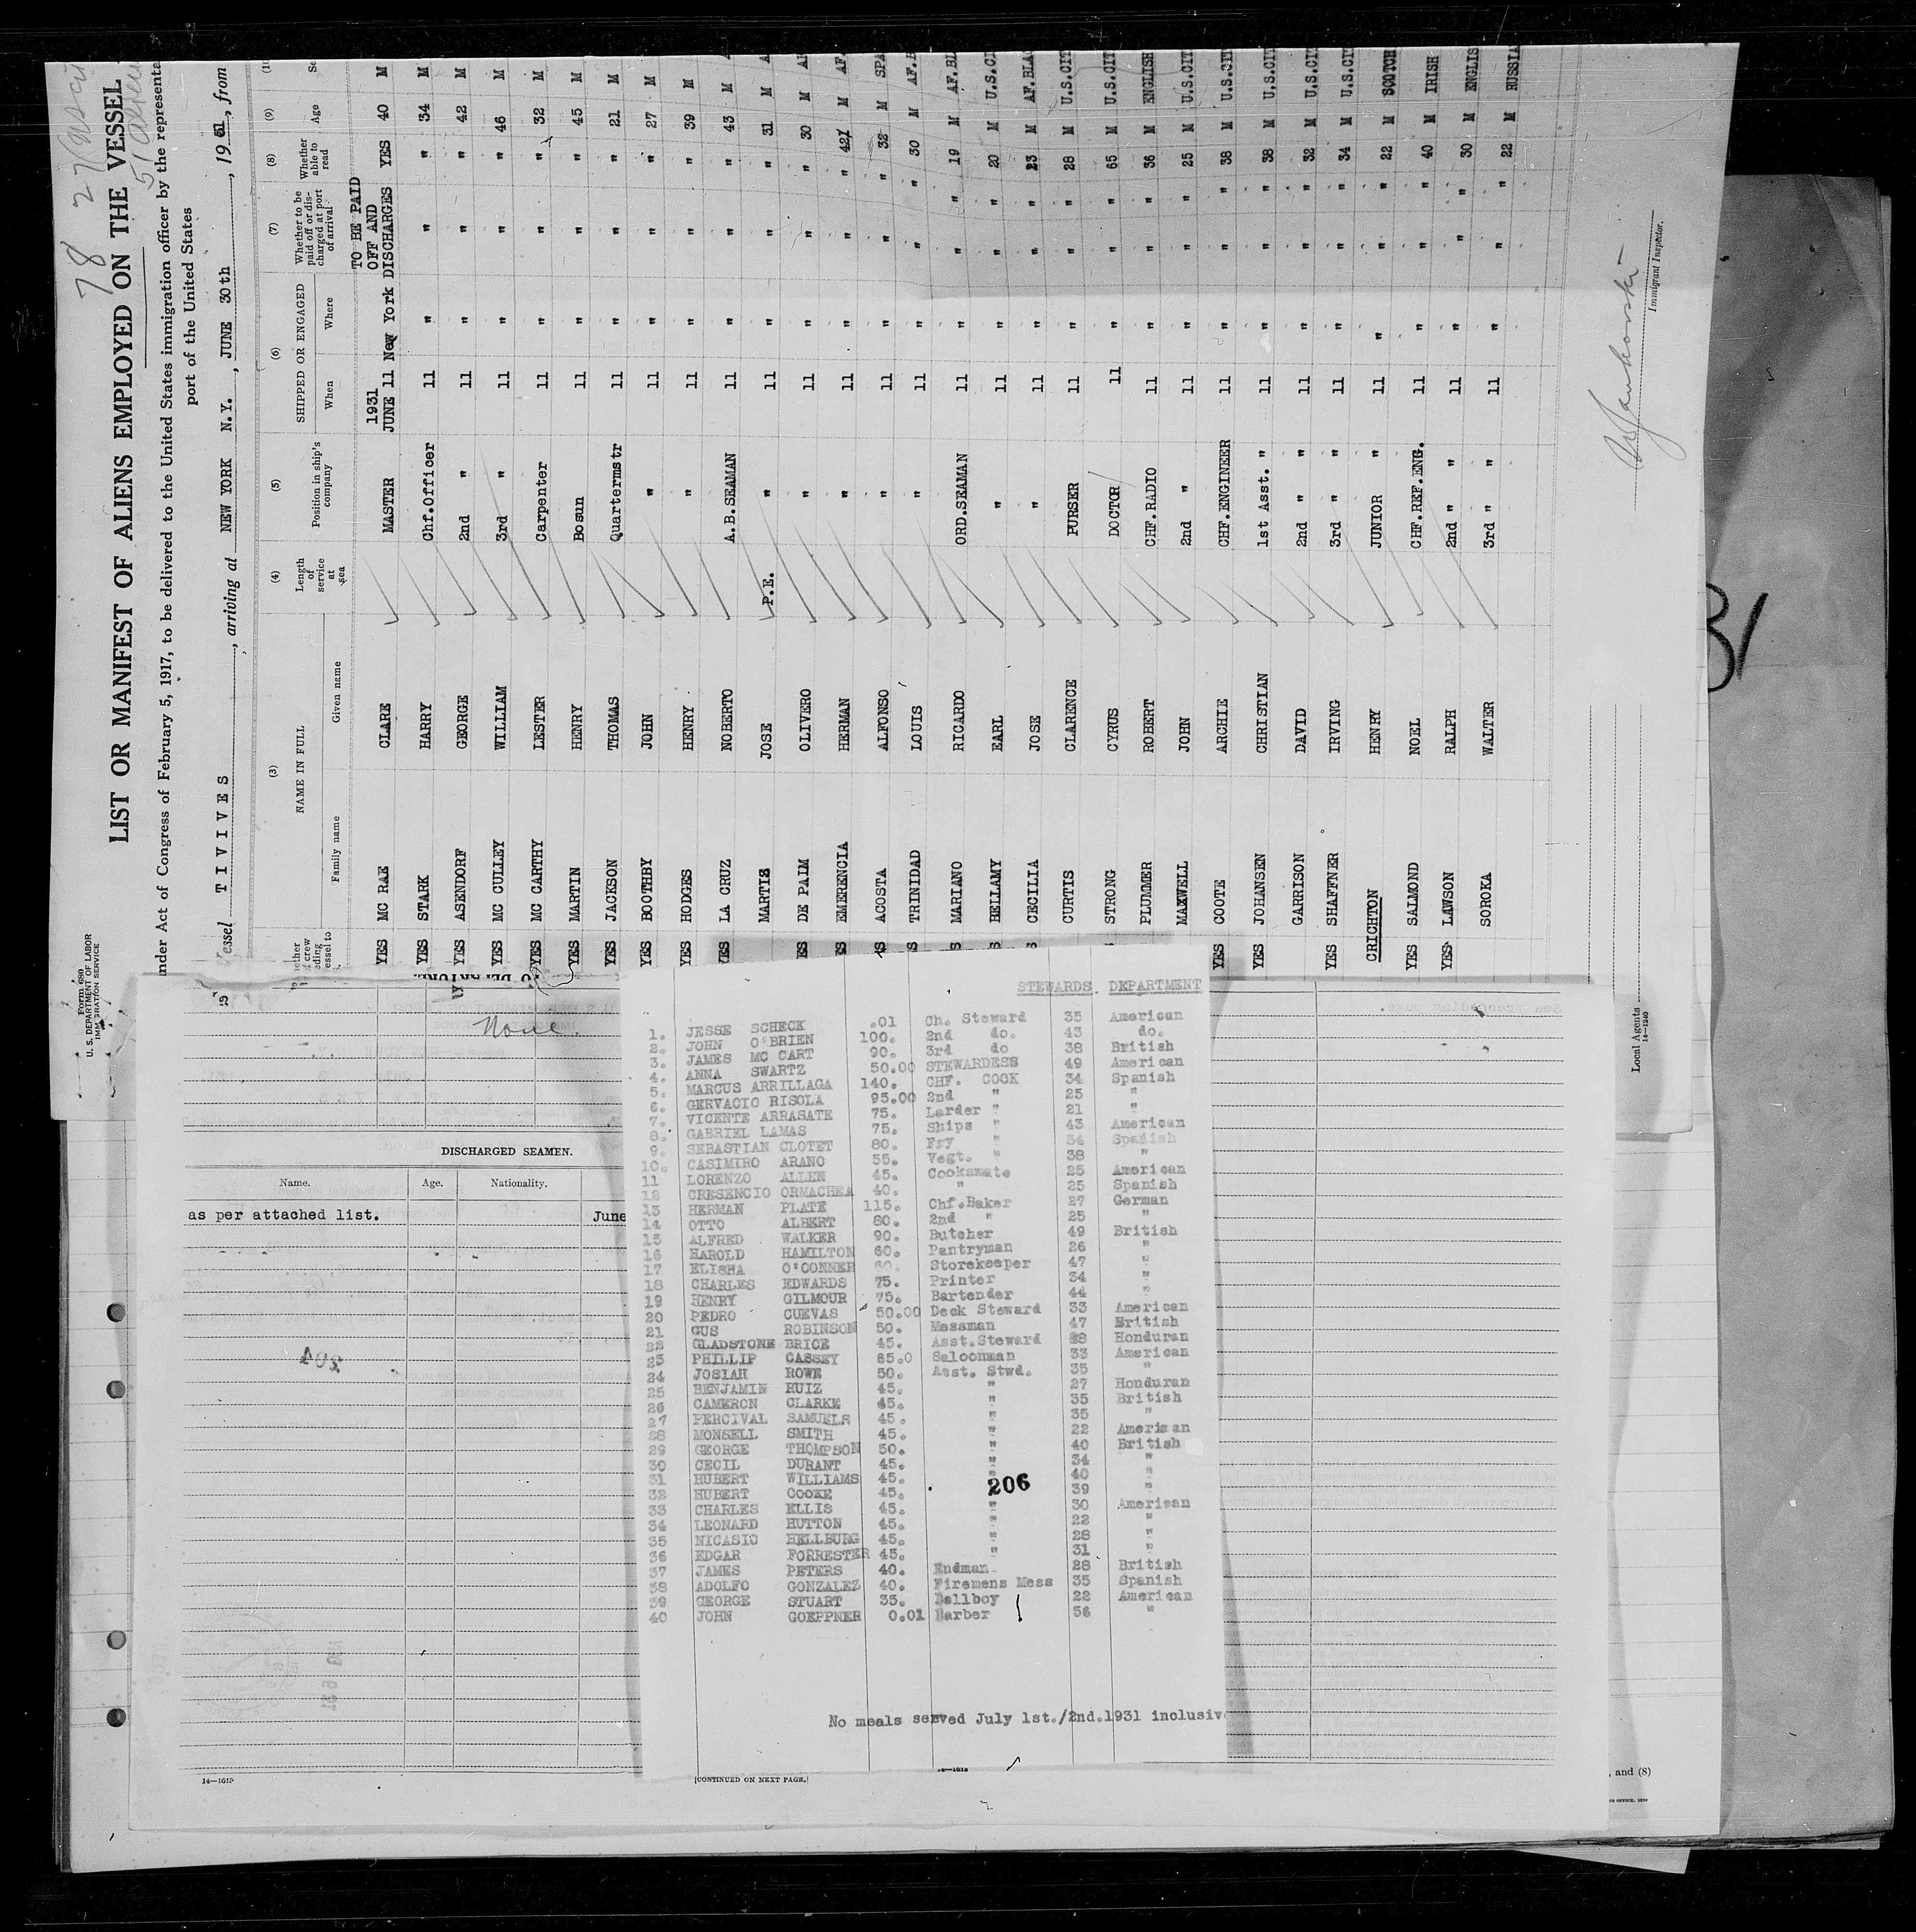 78 27
LIST OR MANIFEST OF ALIENS EMPLOYED ON THE VESSEL
nder Act of Congress of February 5, 1917, to be delivered to the United States immigration officer by the representa
port of the United States
Form 680
U. S. DEPARTMENT OF LABOR
essel TIVIVES, arriving at NEW YORK N.Y., JUNE 30th, 19 , from
(3) (4) (5) (6) (7) (8) (9)
NAME IN FULL Length of service at sea Position in ship's company SHIPPED OR ENGAGED Whether to be paid off or discharged at port of arrival Whether able to read Age
Family name Given name When Where
1931 TO BE PAID OFF AND
YES MC RAE CLARE MASTER JUNE 11 New York DISCHARGES YES 40 M
YES STARK HARRY Chf.Officer 11 " " " 34 M
YES ASENDORF GEORGE 2nd " 11 " " " 42 M
YES MC CULLEY WILLIAM 3rd " 11 " " " 46 M
YES MC CARTHY LESTER Carpenter 11 " " " 32 M
YES MARTIN HENRY Bosun 11 " " " 45 M
YES JACKSON THOMAS Quartermstr 11 " " " 21 M
YES BOOTHBY JOHN " 11 " " " 27 M
YES HODGES HENRY " 11 " " " 39 M
YES LA CRUZ NOBERTO A.B.SEAMAN 11 " " " 43 M
MARTIS JOSE P.E. " 11 " " " 31 M
ES DE PAIM OLIVERO " 11 " " " 30 M
S EMERENCIA HERMAN " 11 " " " 42 M AF.
S ACOSTA ALFONSO " 11 " " " 32 M SPA
S TRINIDAD LOUIS " 11 " " " 30 M AF.B
S MARIANO RICARDO ORD.SEAMAN 11 " " " 19 M AF.BL
S BELLAMY EARL " 11 " " " 20 M U.S.CI
S CECILIA JOSE " 11 " " " 23 M AF.BLA
CURTIS CLARENCE PURSER 11 " " " 28 M U.S.CIT
STRONG CYRUS DOCTOR 11 " " " 65 M U.S.CIT
PLUMMER ROBERT CHF.RADIO 11 " " " 36 M ENGLISH
MAXWELL JOHN 2nd " 11 " " " 25 M U.S.CIT
YES COOTE ARCHIE CHF.ENGINEER 11 " " " 38 M U.S.CIT
YES JOHANSEN CHRISTIAN 1st Asst. " 11 " " " 38 M U.S.CIT
GARRISON DAVID 2nd " " 11 " " " 32 M U.S.CIT
YES SHAFFNER IRVING 3rd " " 11 " " " 34 M U.S.CIT
CRICHTON HENRY JUNIOR " 11 " " " 22 M SCOTCH
YES SALMOND NOEL CHF.REF.ENG. 11 " " " 40 M IRISH
YES LAWSON RALPH 2nd " " 11 " " " 30 M ENGLIS
SOROKA WALTER 3rd " " 11 " " " 22 M RUSSIA
Immigrant Inspector.
Local Agents
14—1240
31
None.
DISCHARGED SEAMEN.
Name. Age. Nationality.
as per attached list. June
14—1613
[CONTINUED ON NEXT PAGE.]
, and (8)
STEWARDS DEPARTMENT
1. JESSE SCHECK .01 Ch. Steward 35 American
2. JOHN O'BRIEN 100. 2nd do. 43 do.
3. JAMES MC CART 90. 3rd do 38 British
4. ANNA SWARTZ 50.00 STEWARDESS 49 American
5. MARCUS ARRILLAGA 140. CHF. COOK 34 Spanish
6. GERVACIO RISOLA 95.00 2nd " 25 "
7. VICENTE ARRASATE 75. Larder " 21 "
8. GABRIEL LAMAS 75. Ships " 43 American
9. SEBASTIAN CLOTET 80. Fry " 34 Spanish
10. CASIMIRO ARANO 55. Vegt. " 38 "
11 LORENZO ALLEN 45. Cooksmate 25 American
12 CRESENCIO ORMACHEA 40. " 25 Spanish
13 HERMAN PLATE 115. Chf.Baker 27 German
14 OTTO ALBERT 80. 2nd " 25 "
15 ALFRED WALKER 90. Butcher 49 British
16 HAROLD HAMILTON 60. Pantryman 26 "
17 ELISHA O'CONNER 60. Storekeeper 47 "
18 CHARLES EDWARDS 75. Printer 34 "
19 HENRY GILMOUR 75. Bartender 44 "
20 PEDRO CUEVAS 50.00 Deck Steward 33 American
21 GUS ROBINSON 50. Messman 47 British
22 GLADSTONE BRICE 45. Asst.Steward 28 Honduran
23 PHILLIP CASSEY 65.0 Saloonman 33 American
24 JOSIAH ROWE 50. Asst. Stwd. 35 "
25 BENJAMIN RUIZ 45. " 27 Honduran
26 CAMERON CLARKE 45. " 35 British
27 PERCIVAL SAMUELS 45. " 35 "
28 MONSELL SMITH 45. " 22 American
29 GEORGE THOMPSON 50. " 40 British
30 CECIL DURANT 45. " 34 "
31 HUBERT WILLIAMS 45. " 40 "
32 HUBERT COOKE 45. 206 39 "
33 CHARLES ELLIS 45. " 30 American
34 LEONARD HUTTON 45. " 22 "
35 NICASIO HELLBURG 45. " 28 "
36 EDGAR FORRESTER 45. " 31 "
37 JAMES PETERS 40. Endman 28 British
38 ADOLFO GONZALEZ 40. Firemens Mess 35 Spanish
39 GEORGE STUART 35. Bellboy 22 American
40 JOHN GOEPPNER 0.01 Barber 56 "
No meals served July 1st./2nd.1931 inclusiv